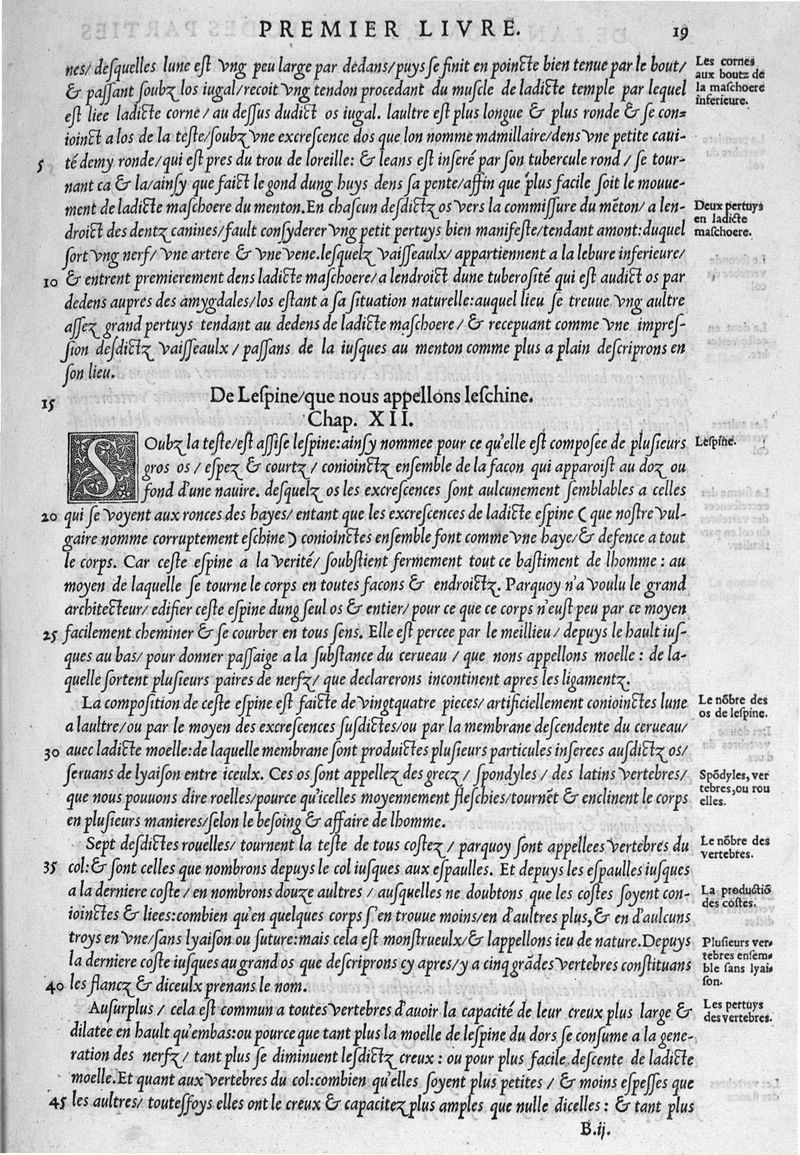 PREMIER LIVRE. 19
nes/ desquelles lune est vng peu large par dedans/puys se finit en poincte bien tenue par le bout/
& passant soubz los iugal/recoit vng tendon procedant du muscle de ladicte temple par lequel
est liee ladicte corne/ au dessus dudict os iugal. laultre est plus longue & plus ronde & se con=
ioinct a los de la teste/soubz vne excrescence dos que lon nomme mamillaire/dens vne petite caui-
5 té demy ronde/qui est pres du trou de loreille: & leans est inseré par son tubercule rond / se tour-
nant ca & la/ainsy que faict le gond dung huys dens sa pente/affin que plus facile soit le mouue-
ment de ladicte maschoere du menton.En chascun desdictz os vers la commissure du mẽton/ a len-
droict des dentz canines/fault consyderer vng petit pertuys bien manifeste/tendant amont:duquel
sort vng nerf/ vne artere & vne vene.lesquelz vaisseaulx/ appartiennent a la lebure inferieure/
10 & entrent premierement dens ladicte maschoere/a lendroict dune tuberosité qui est audict os par
dedens aupres des amygdales/los estant a sa situation naturelle:auquel lieu se treuue vng aultre
assez grand pertuys tendant au dedens de ladicte maschoere/ & recepuant comme vne impres-
sion desdictz vaisseaulx / passans de la iusques au menton comme plus a plain descriprons en
son lieu.
Les cornes
aux boutz de
la maschoere
inferieure.
Deux pertuys
en ladicte
maschoere.
15 De Lespine/que nous appellons leschine.
Chap. XII.
SOubz la teste/est assise lespine:ainsy nommee pour ce qu'elle est composee de plusieurs
gros os / espez & courtz / conioinctz ensemble de la façon qui apparoist au doz ou
fond d'une nauire. desquelz os les excrescences sont aulcunement semblables a celles
20 qui se voyent aux ronces des hayes/ entant que les excrescences de ladicte espine ( que nostre vul-
gaire nomme corruptement eschine ) conioinctes ensemble font comme vne haye/& defence a tout
le corps. Car ceste espine a la verité/ soubstient fermement tout ce bastiment de lhomme : au
moyen de laquelle se tourne le corps en toutes facons & endroictz. Parquoy n'a voulu le grand
architecteur/ edifier ceste espine dung seul os & entier/ pour ce que ce corps n'eust peu par ce moyen
25 facilement cheminer & se courber en tous sens. Elle est percee par le meillieu / depuys le hault ius-
ques au bas/ pour donner passaige a la substance du cerueau / que nons appellons moelle : de la-
quelle sortent plusieurs paires de nerfz/ que declarerons incontinent apres les ligamentz.
Lespine.
La composition de ceste espine est faicte de vingtquatre pieces/ artificiellement conioinctes lune
a laultre/ou par le moyen des excrescences susdictes/ou par la membrane descendente du cerueau/
30 auec ladicte moelle:de laquelle membrane sont produictes plusieurs particules inserees ausdictz os/
seruans de lyaison entre iceulx. Ces os sont appellez des grecz / spondyles / des latins vertebres/
que nous pouuons dire roelles/pource qu'icelles moyennement fleschies/tournẽt & enclinent le corps
en plusieurs manieres/selon le besoing & affaire de lhomme.
Le nõbre des
os de lespine.
Spõdyles, ver
tebres,ou rou
elles.
Sept desdictes rouelles/ tournent la teste de tous costez / parquoy sont appellees vertebres du
35 col:& sont celles que nombrons depuys le col iusques aux espaulles. Et depuys les espaulles iusques
a la derniere coste / en nombrons douze aultres / ausquelles ne doubtons que les costes soyent con-
ioinctes & liees:combien qu'en quelques corps s'en trouue moins/en d'aultres plus,& en d'aulcuns
troys en vne/sans lyaison ou suture:mais cela est monstrueulx/& lappellons ieu de nature.Depuys
la derniere coste iusques au grand os que descriprons cy apres/y a cinq grãdes vertebres constituans
40 les flancz & diceulx prenans le nom.
Le nõbre des
vertebres.
La productiõ
des costes.
Plusieurs ver-
tebres ensem-
ble sans lyai-
son.
Ausurplus / cela est commun a toutes vertebres d'auoir la capacité de leur creux plus large &
dilatee en hault qu'embas:ou pource que tant plus la moelle de lespine du dors se consume a la gene-
ration des nerfz/ tant plus se diminuent lesdictz creux : ou pour plus facile descente de ladicte
moelle.Et quant aux vertebres du col:combien qu'elles soyent plus petites / & moins espesses que
45 les aultres/ toutessoys elles ont le creux & capacitez plus amples que nulle dicelles : & tant plus
Les pertuys
des vertebres.
B.ij.